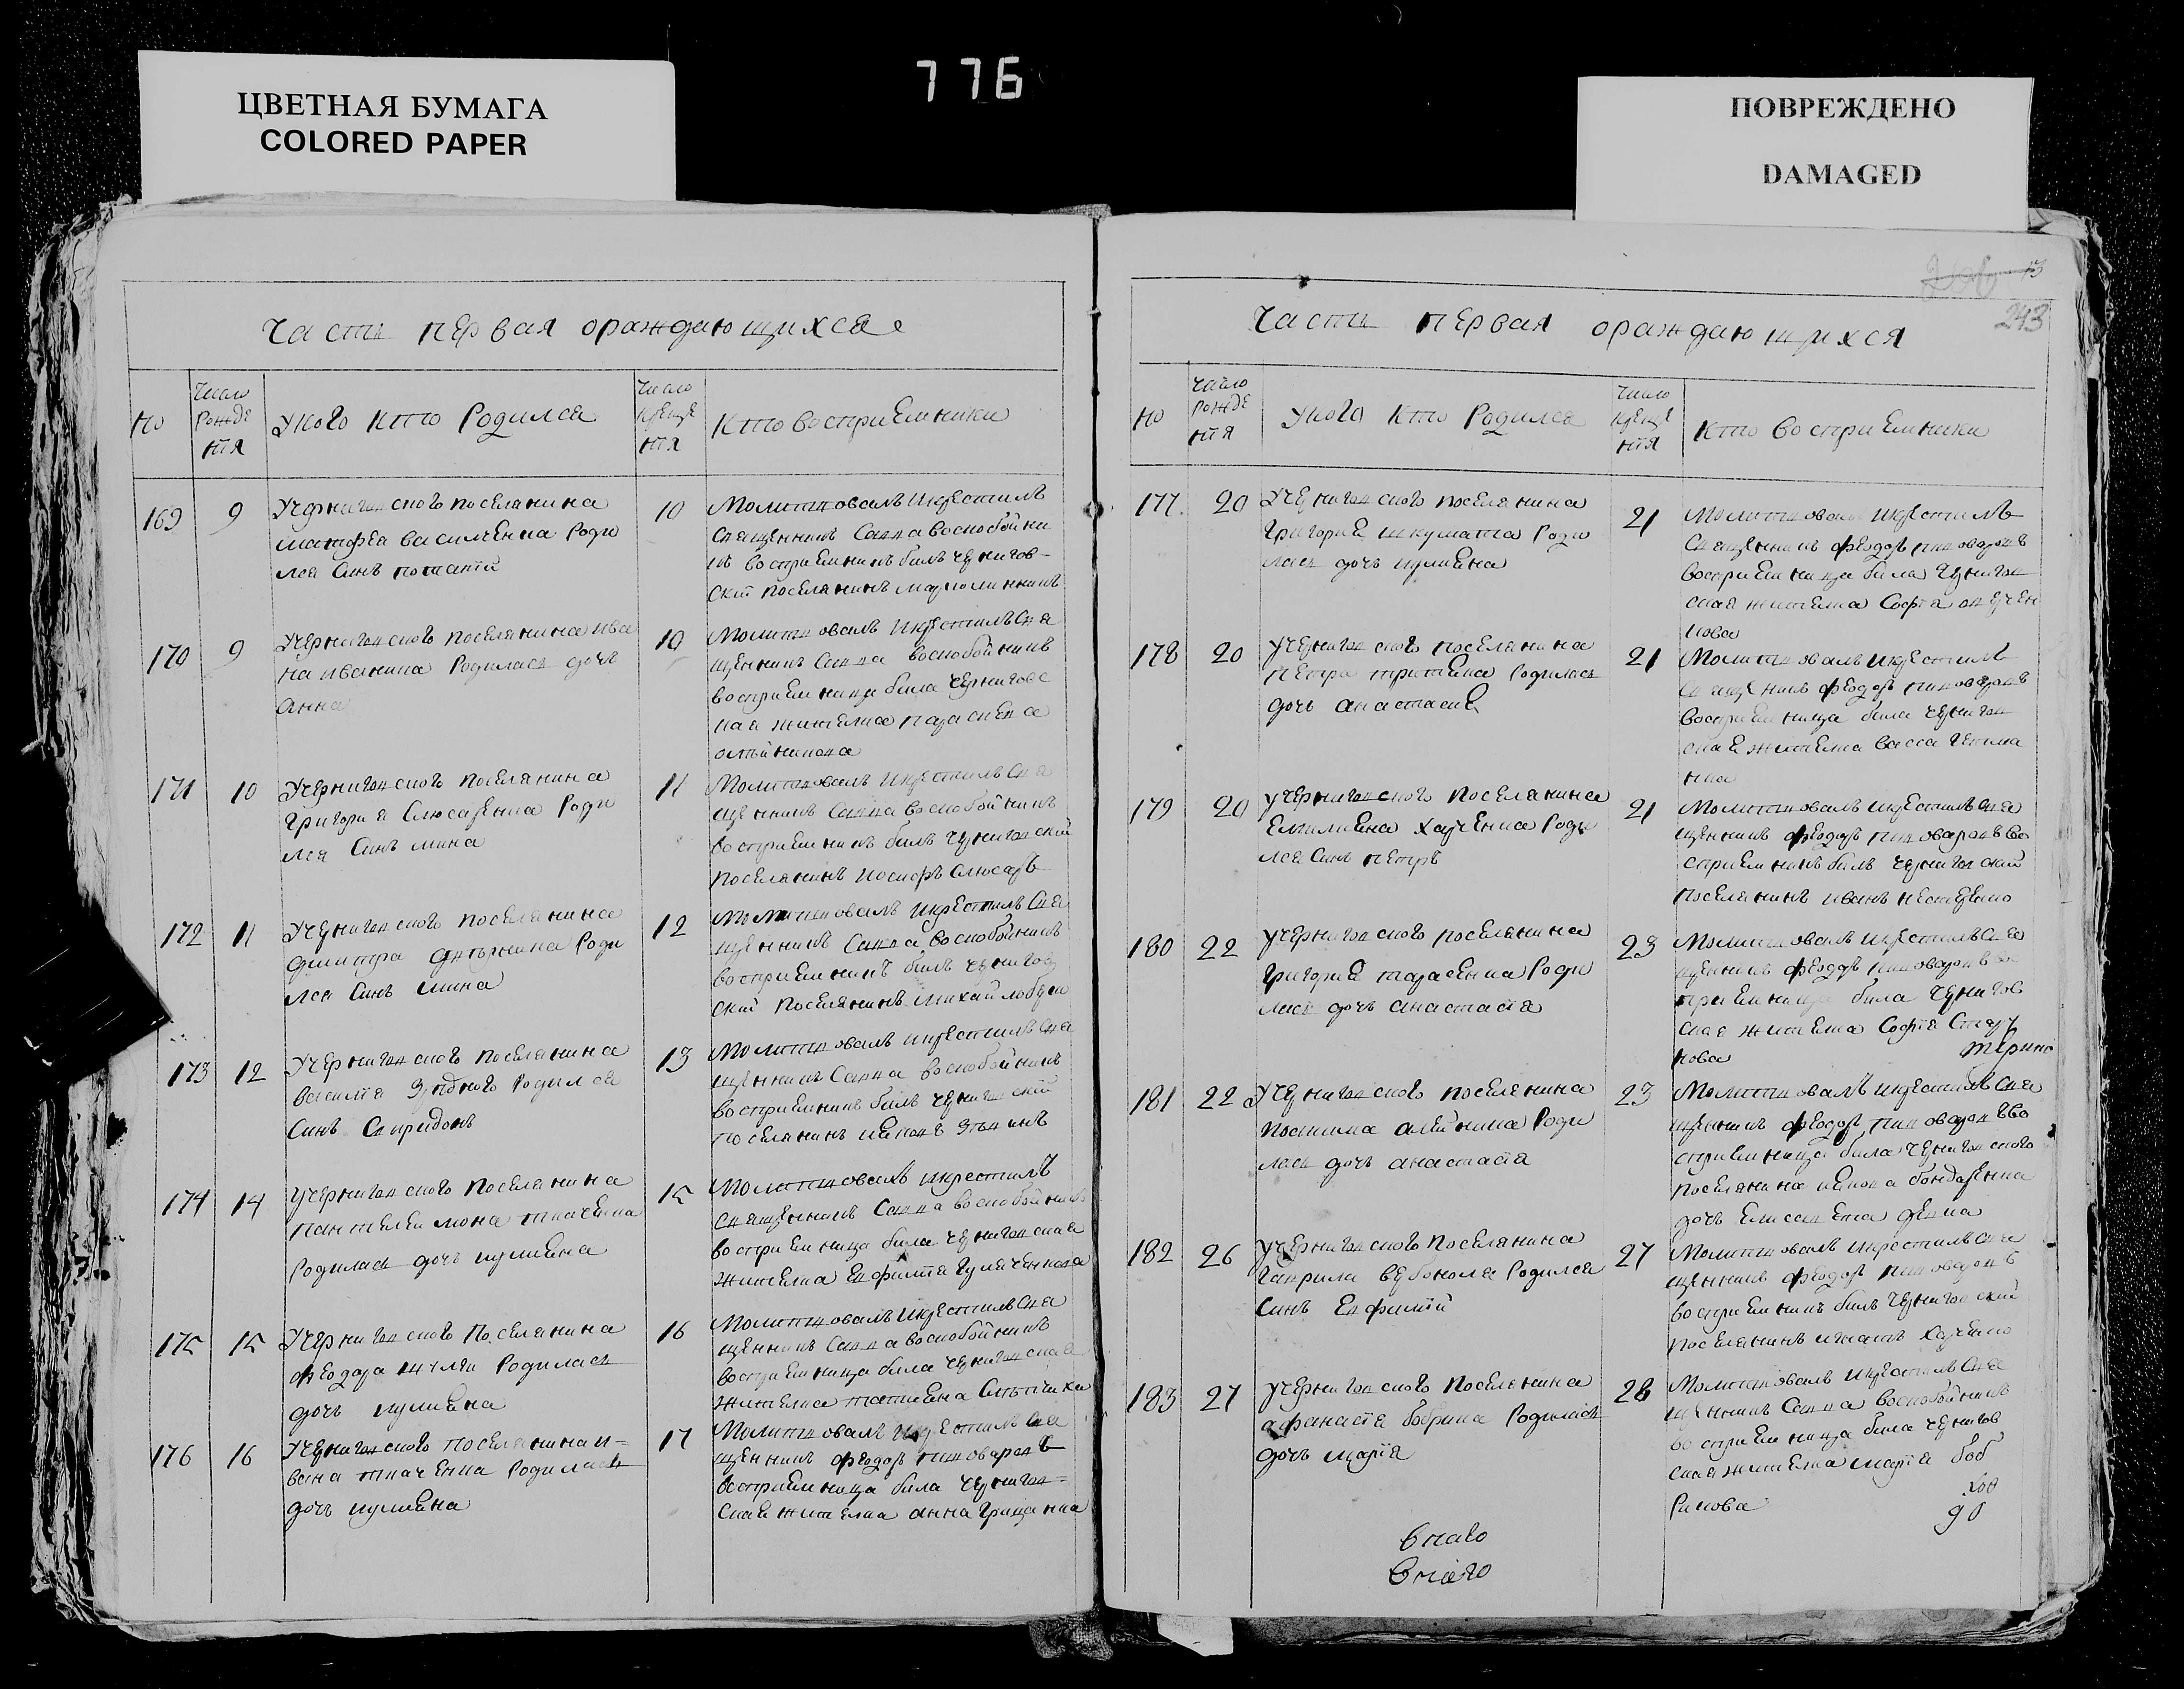 776
ЦВЕТНАЯ БУМАГА
COLORED PAPER
ПОВРЕЖДЕНО
DAMAGED
Часть первая ораждающихся
No
Число Рожденїя
Укого кто Родился
Число крещенїя
Кто восприемники
169 9
Учерниговского поселянина
матфея василенка Роди
лся Синъ потапїй
10
Молитвовалъ икрестилъ
Священникъ Савва воскобойни
къ восприемникъ билъ чернигов-
скїй поселянинъ
170 9
Учернигов ского поселянина ива
на иванина Родилась дочъ
Анна
10
Молитвовалъ икрестилъ Свя
щенникъ Савва воскобойникъ
восприемница била Черниговс
кая жителка параскева
олейникова
171 10
Учернигов ского поселянина
Григория Слюсаренка Роди
лся Синъ мина
11
Молитвовалъ икрестилъ Свя
щенникъ Савва воскобойникъ
восприемникъ билъ черниговский
поселянинъ иосифъ Слюсаръ
172 11
Учернигов ского поселянина
димитра Роди
лся Синъ мина
12
Молитвовалъ икрестилъ Свя
щенникъ Савва воскобойникъ
восприемникъ билъ чернигов
ский поселянинъ михайло
173 12
Учернигов ского поселянина
василїя Родился
Синъ Спиридонъ
13
Молитвовалъ икрестилъ Свя
щенникъ Савва воскобойникъ
восприемникъ билъ чернигов скїй
поселянинъ
174 14
Учернигов ского поселянина
пантелеимона ткаченка
Родилась дочъ иулиена
15
Молитвовалъ икрестилъ
Священникъ Савва воскобойникъ
восприемница била чернигов ская
жителка Евфимїя
175 15
Учернигов ского поселянина
феодора Родилась
дочъ иулиена
16
Молитвовалъ икрестилъ Свя
щенникъ Савва воскобойникъ
восприемница била чернигов ская
жителка татиена
176 16
Учернигов ского поселянина и=
вана ткаченка Родилась
дочъ иулиена
17
Молитвовалъ икрестилъ Свя
щенникъ феодоръ пивоваровъ
восприемница била чернигов=
ская жителка анна Грицанка
243
Часть первая ораждающихся
No
Число Рожденїя
Укого Кто Родился
Число крещенїя
Кто восприемники
177. 20
Учернигов ского поселянина
Григорие шкумата Роди
лась дочъ иулиена
21
Молитвовалъ икрестилъ
Священникъ феодоръ пивоваровъ
восприемница била чернигов
ская жителка Софїя
178 20
Учернигов ского поселянина
петра Родилась
дочъ анастасие
21
Молитвовалъ икрестилъ
Священникъ феодоръ пивоваровъ
восприемница била чернигов
ская жителка васса
179 20
Учернигов ского поселянина
Емилиена харченка Роди
лся Синъ петръ
21
Молитвовалъ икрестилъ Свя
щенникъ феодоръ пивоваровъ во
сприемникъ билъ чернигов ский
поселянинъ иванъ
180 22
Учернигов ского поселянина
Григорие тарасенка Роди
лась дочъ анастасїя
23
Молитвовалъ икрестилъ Свя
щенникъ феодоръ пивоваровъ во
сприемница била чернигов
ская жителка Софїя
181 22
Учернигов ского поселянина
Роди
лась дочъ анастасїя
23
Молитвовалъ икрестилъ Свя
щенникъ феодоръ пивоваровъ во
сприемница била чернигов ского
поселянина бондаренка
дочъ Елисавета девка
182 26
Учернигов ского поселянина
Гаврила Родился
Синъ Евфимїй
27
Молитвовалъ икрестилъ Свя
щенникъ феодоръ пивоваровъ
восприемникъ билъ чернигов ский
поселянинъ игнатъ харченко
183 27
Учернигов ского поселянина
афанасїя бобрика Родилась
дочъ марїя
28
Молитвовалъ икрестилъ Свя
щенникъ Савва воскобойникъ
восприемница била чернигов
ская жителка марїя боб
рикова